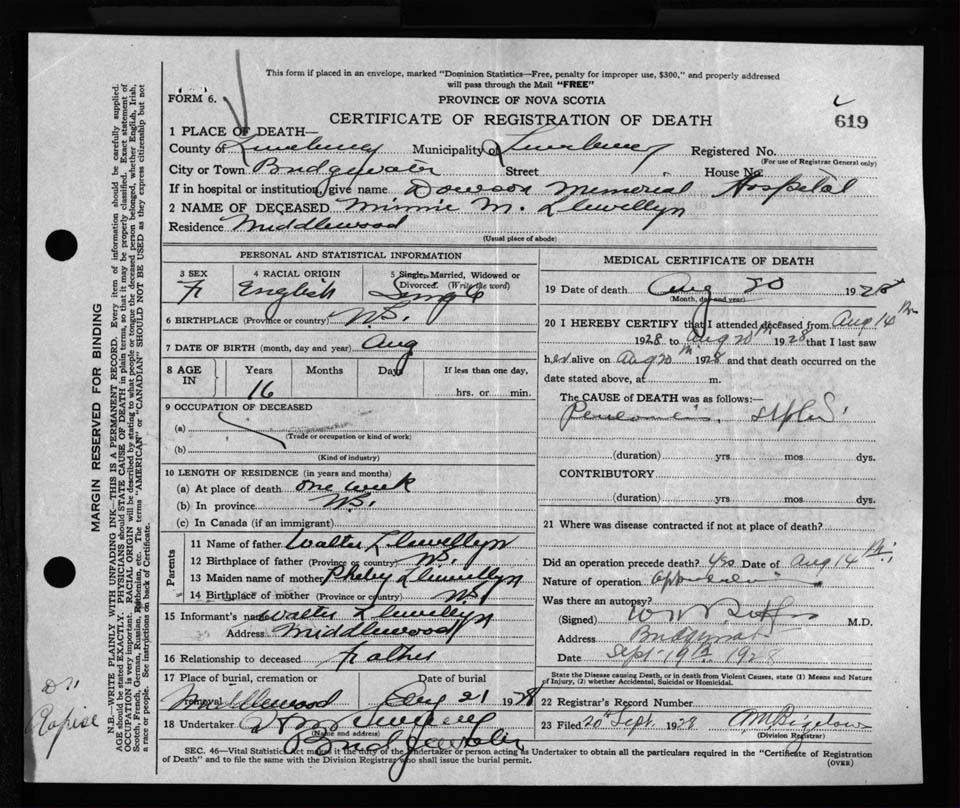 This form if placed in an envelope, marked "Dominion Statistics—Free, penalty for improper use, $300," and properly addressed
will pass through the Mail "FREE"
FORM 6.
PROVINCE OF NOVA SCOTIA
CERTIFICATE OF REGISTRATION OF DEATH
619
1 PLACE OF DEATH—
County of Lunenburg Municipality of Lunenburg Registered No.
(For use of Registrar General only)
City or Town Bridgewater Street House No.
If in hospital or institution, give name Dawson Memorial Hospital
2 NAME OF DECEASED Minnie M. Llewellyn
Residence Middlewood
(Usual place of abode)
PERSONAL AND STATISTICAL INFORMATION
3 SEX 4 RACIAL ORIGIN 5 Single, Married, Widowed or Divorced. (Write the word)
F English Single
6 BIRTHPLACE (Province or country) N.S.
7 DATE OF BIRTH (month, day and year) Aug
8 AGE IN Years Months Days If less than one day,
16 hrs. or min.
9 OCCUPATION OF DECEASED
(a)
(Trade or occupation or kind of work)
(b)
(Kind of industry)
10 LENGTH OF RESIDENCE (in years and months)
(a) At place of death one week
(b) In province N.S.
(c) In Canada (if an immigrant)
Parents
11 Name of father Walter Llewellyn
12 Birthplace of father (Province or country) N.S.
13 Maiden name of mother Pheby Llewellyn
14 Birthplace of mother (Province or country) N.S.
15 Informant's name Walter Llewellyn
Address Middlewood
16 Relationship to deceased Father
17 Place of burial, cremation or removal Date of burial
Middlewood Aug 21 1928
18 Undertaker
(Name and address)
Bridgewater
MEDICAL CERTIFICATE OF DEATH
19 Date of death Aug 20 1928
(Month, day and year)
20 I HEREBY CERTIFY that I attended deceased from Aug 14th
1928 to Aug 20th 1928 that I last saw
her alive on Aug 20th 1928 and that death occurred on
date stated above, at m.
The CAUSE of DEATH was as follows:—
(duration) yrs mos dys.
CONTRIBUTORY
(duration) yrs mos dys.
21 Where was disease contracted if not at place of death?
Did an operation precede death? yes Date of Aug 14th
Nature of operation
Was there an autopsy?
(Signed) M.D.
Address Bridgewater
Date Sept. 19th 1928
State the Disease causing Death, or in death from Violent Causes, state (1) Means and Nature
of Injury, (2) whether Accidental, Suicidal or Homicidal.
22 Registrar's Record Number
23 Filed 20th Sept. 1928 A.M. Bigelow
(Division Registrar)
SEC. 46—Vital Statistics Act makes it the duty of the Undertaker or person acting as Undertaker to obtain all the particulars required in the "Certificate of Registration
of Death" and to file the same with the Division Registrar who shall issue the burial permit.
(OVER)
MARGIN RESERVED FOR BINDING
N.B.—WRITE PLAINLY WITH UNFADING INK—THIS IS A PERMANENT RECORD. Every item of information should be carefully supplied.
AGE should be stated EXACTLY. PHYSICIANS should STATE CAUSE OF DEATH in plain terms, so that it may be properly classified. Exact statement of
OCCUPATION is very important. RACIAL ORIGIN will be described by stating to what people or tongue the deceased person belonged, whether English, Irish,
Scotch, French, German, Russian, Ruthenian, etc. The terms "AMERICAN" or "CANADIAN" SHOULD NOT BE USED as they express citizenship but not
a race or people. See instructions on back of Certificate.